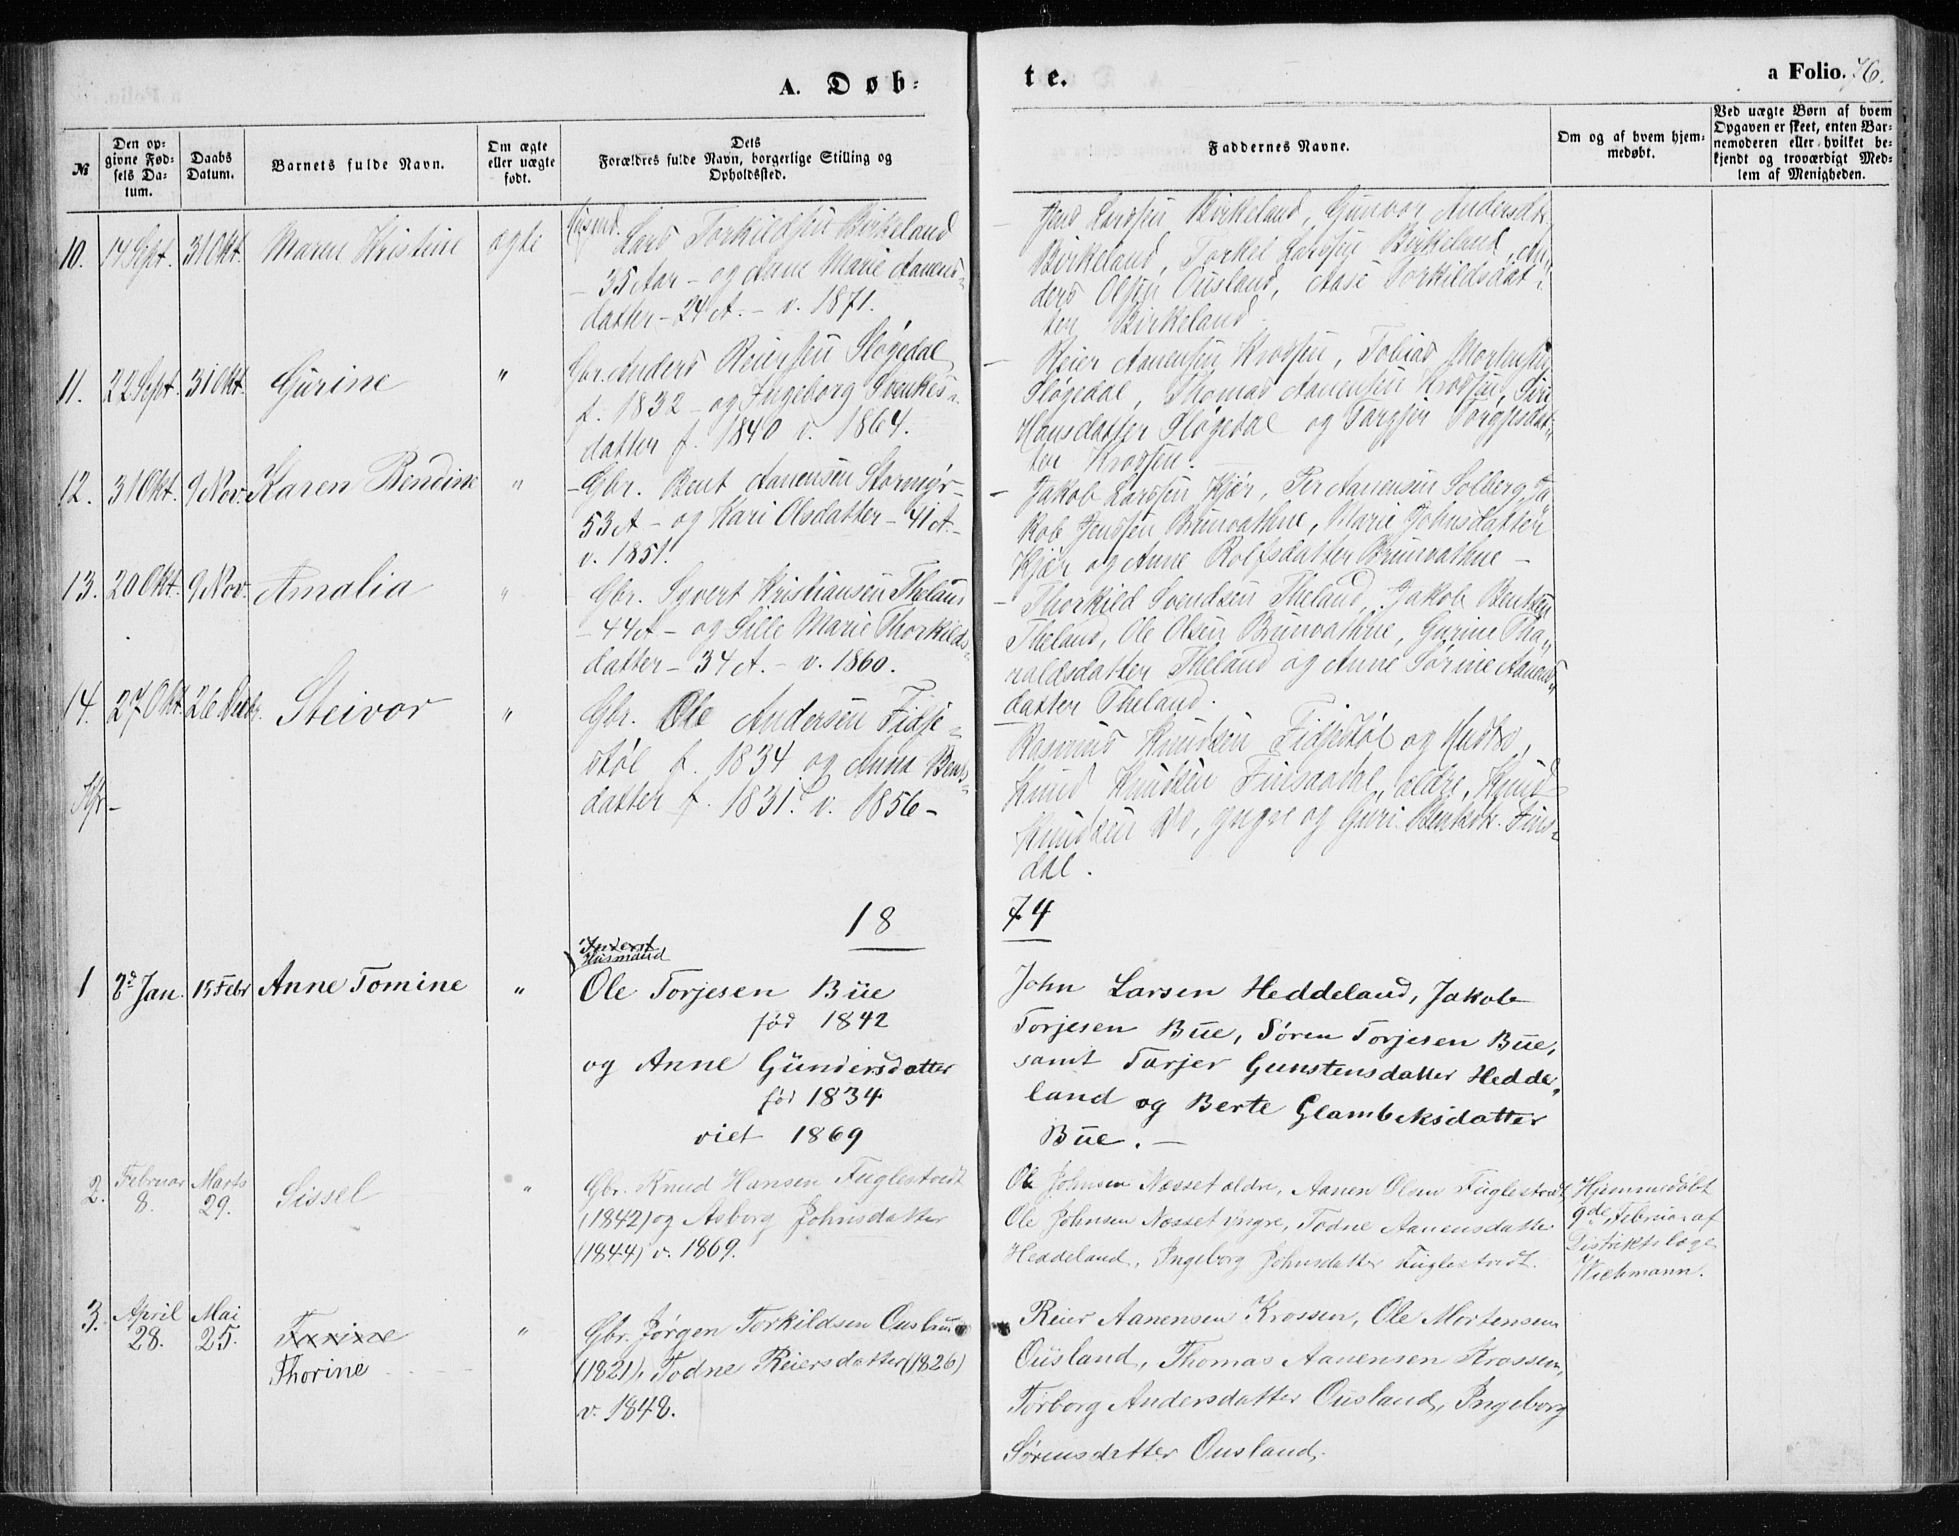 A. Døb-
te.
a Folio. 76.
№
Den op-
givne Fød-
sels Da-
tum.
Daabs
Datum.
Barnets fulde Navn.
Om ægte
eller uægte
født.
Dets
Forældres fulde Navn, borgerlige Stilling og
Opholdssted.
Faddernes Navne.
Om og af hvem hjem-
medøbt.
Ved uægte Børn af hvem
Opgaven er skeet, enten Bar-
nemoderen eller hvilket be-
kjendt og troværdigt Med-
lem af Menigheden.
10. 14 Sept. 31 Okt. Maren Kristine ægte
Lars Torkildsen Birkeland
- 35 Aar - og Anne Marie Aanens-
datter - 24 A. - v. 1871.
- Jens Larssen Birkeland, Gunvor Andersdtr
Birkeland, Torkel Larssen Birkeland, An-
ders Olsen Ousland, Aase Torkildsdat-
ter Birkeland -
11. 22 Sept. 31 Okt. Gurine "
Gbr. Anders Reiersen Fløgedal
f. 1832 - og Ingeborg Svenkes-
datter f. 1840 v. 1864.
- Reier Aanensen Krossen, Tobias Mortensen
Fløgedal, Thomas Aanensen Krossen, Siri
Hansdatter Fløgedal og Targjer Torgjusdat-
ter Krossen.
12. 31 Okt. 9 Nov. Karen Bendine "
- Gbr. Bent Aanensen Stormyr -
53 A - og Kari Olsdatter - 41 A -
v. 1851.
- Jakob Larssen Kjær, Per Aanensen Solberg, Ja-
kob Jenssen Brunvathne, Marie Johnsdatter
Kjær og Anne Rolfsdatter Brunvathne -
13. 20 Okt. 9 Nov. Amalia "
Gbr. Syvert Kristiansen Theland
- 44 A - og Sille Marie Thorkilds-
datter - 34 A. - v. 1860.
- Thorkild Svendsen Theland, Jakob Bentsen
Theland, Ole Olsen Brunvathne, Gurine Tha-
naldsdatter Theland og Anne Sørine Aanens-
datter Theland.
14. 27 Okt. 26 Steivor "
Gbr. Ole Andersen Fidje-
støl f. 1834 og Anna Bents-
datter f. 1831. v. 1856 -
Rasmus Knudsen Fidjestøl og Hustro,
Knud Knudsen Finsaadal, ældre, Knud
Knudsen do, yngre og Guri Bentsdtr. Fins-
dal.
18
74
1 2d Jan. 15 Febr Anne Tomine "
Inderst
Husmand
Ole Torjesen Büe
fød 1842
og Anne Gündersdatter
fød 1834
viet 1869
John Larsen Heddeland, Jakob
Torjesen Büe, Sören Torjesen Büe,
samt Tarjer Gunstensdatter Hedde-
land og Berte Glambeksdatter
Büe. -
2. Februar 8. Marts 29. Sissel "
Gbr. Knud Hansen Fuglestvedt
(1842) og Asborg Johnsdatter
(1844) v. 1869.
Ole Johnsen Næsset ældre, Aanen Olsen Fuglestvedt
Ole Johnsen Næsset yngre, Todne Aanensdatter
Heddeland, Ingeborg Johnsdatter Fuglestvedt.
Hjemmedøbt
9de Februar af
Distriktslæge
Wichmann.
3. April 28. Mai 25. Torine
Thorine "
Gbr. Jørgen Torkildsen Ousland
(1821), Todne Reiersdatter (1826)
v. 1848.
Reier Aanensen Krossen, Ole Mortensen
Ousland, Thomas Aanensen Krossen,
Torborg Andersdatter Ousland, Ingeborg
Sørensdatter Ousland.